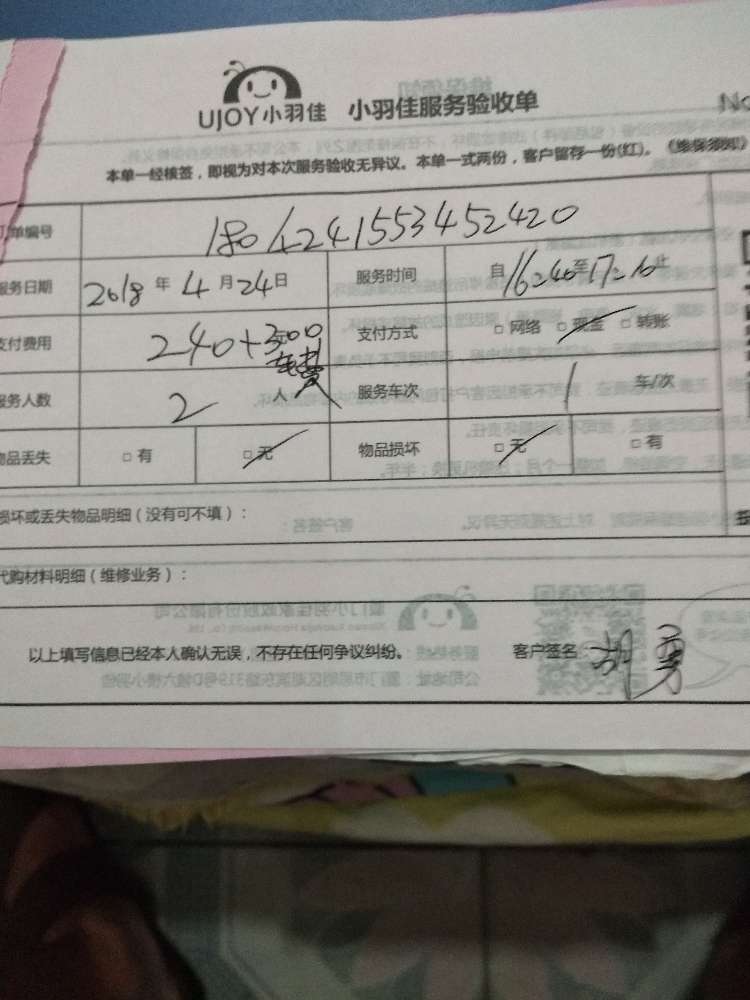 UJOY小羽佳 小羽佳服务验收单 No
本单一经核签，即视为对本次服务验收无异议。本单一式两份，客户留存一份(红)。《维保须知》
订单编号 1804241553452420
服务日期 2018 年 4 月 24 日 服务时间 自 16:40 至 17:10 止
支付费用 240+300 车费 支付方式 □ 网络 □ 现金 □ 转账
服务人数 2 人 服务车次 1 车/次
物品丢失 □ 有 □ 无 物品损坏 □ 无 □ 有
损坏或丢失物品明细（没有可不填）：
代购材料明细（维修业务）：
以上填写信息已经本人确认无误，不存在任何争议纠纷。 客户签名：胡勇